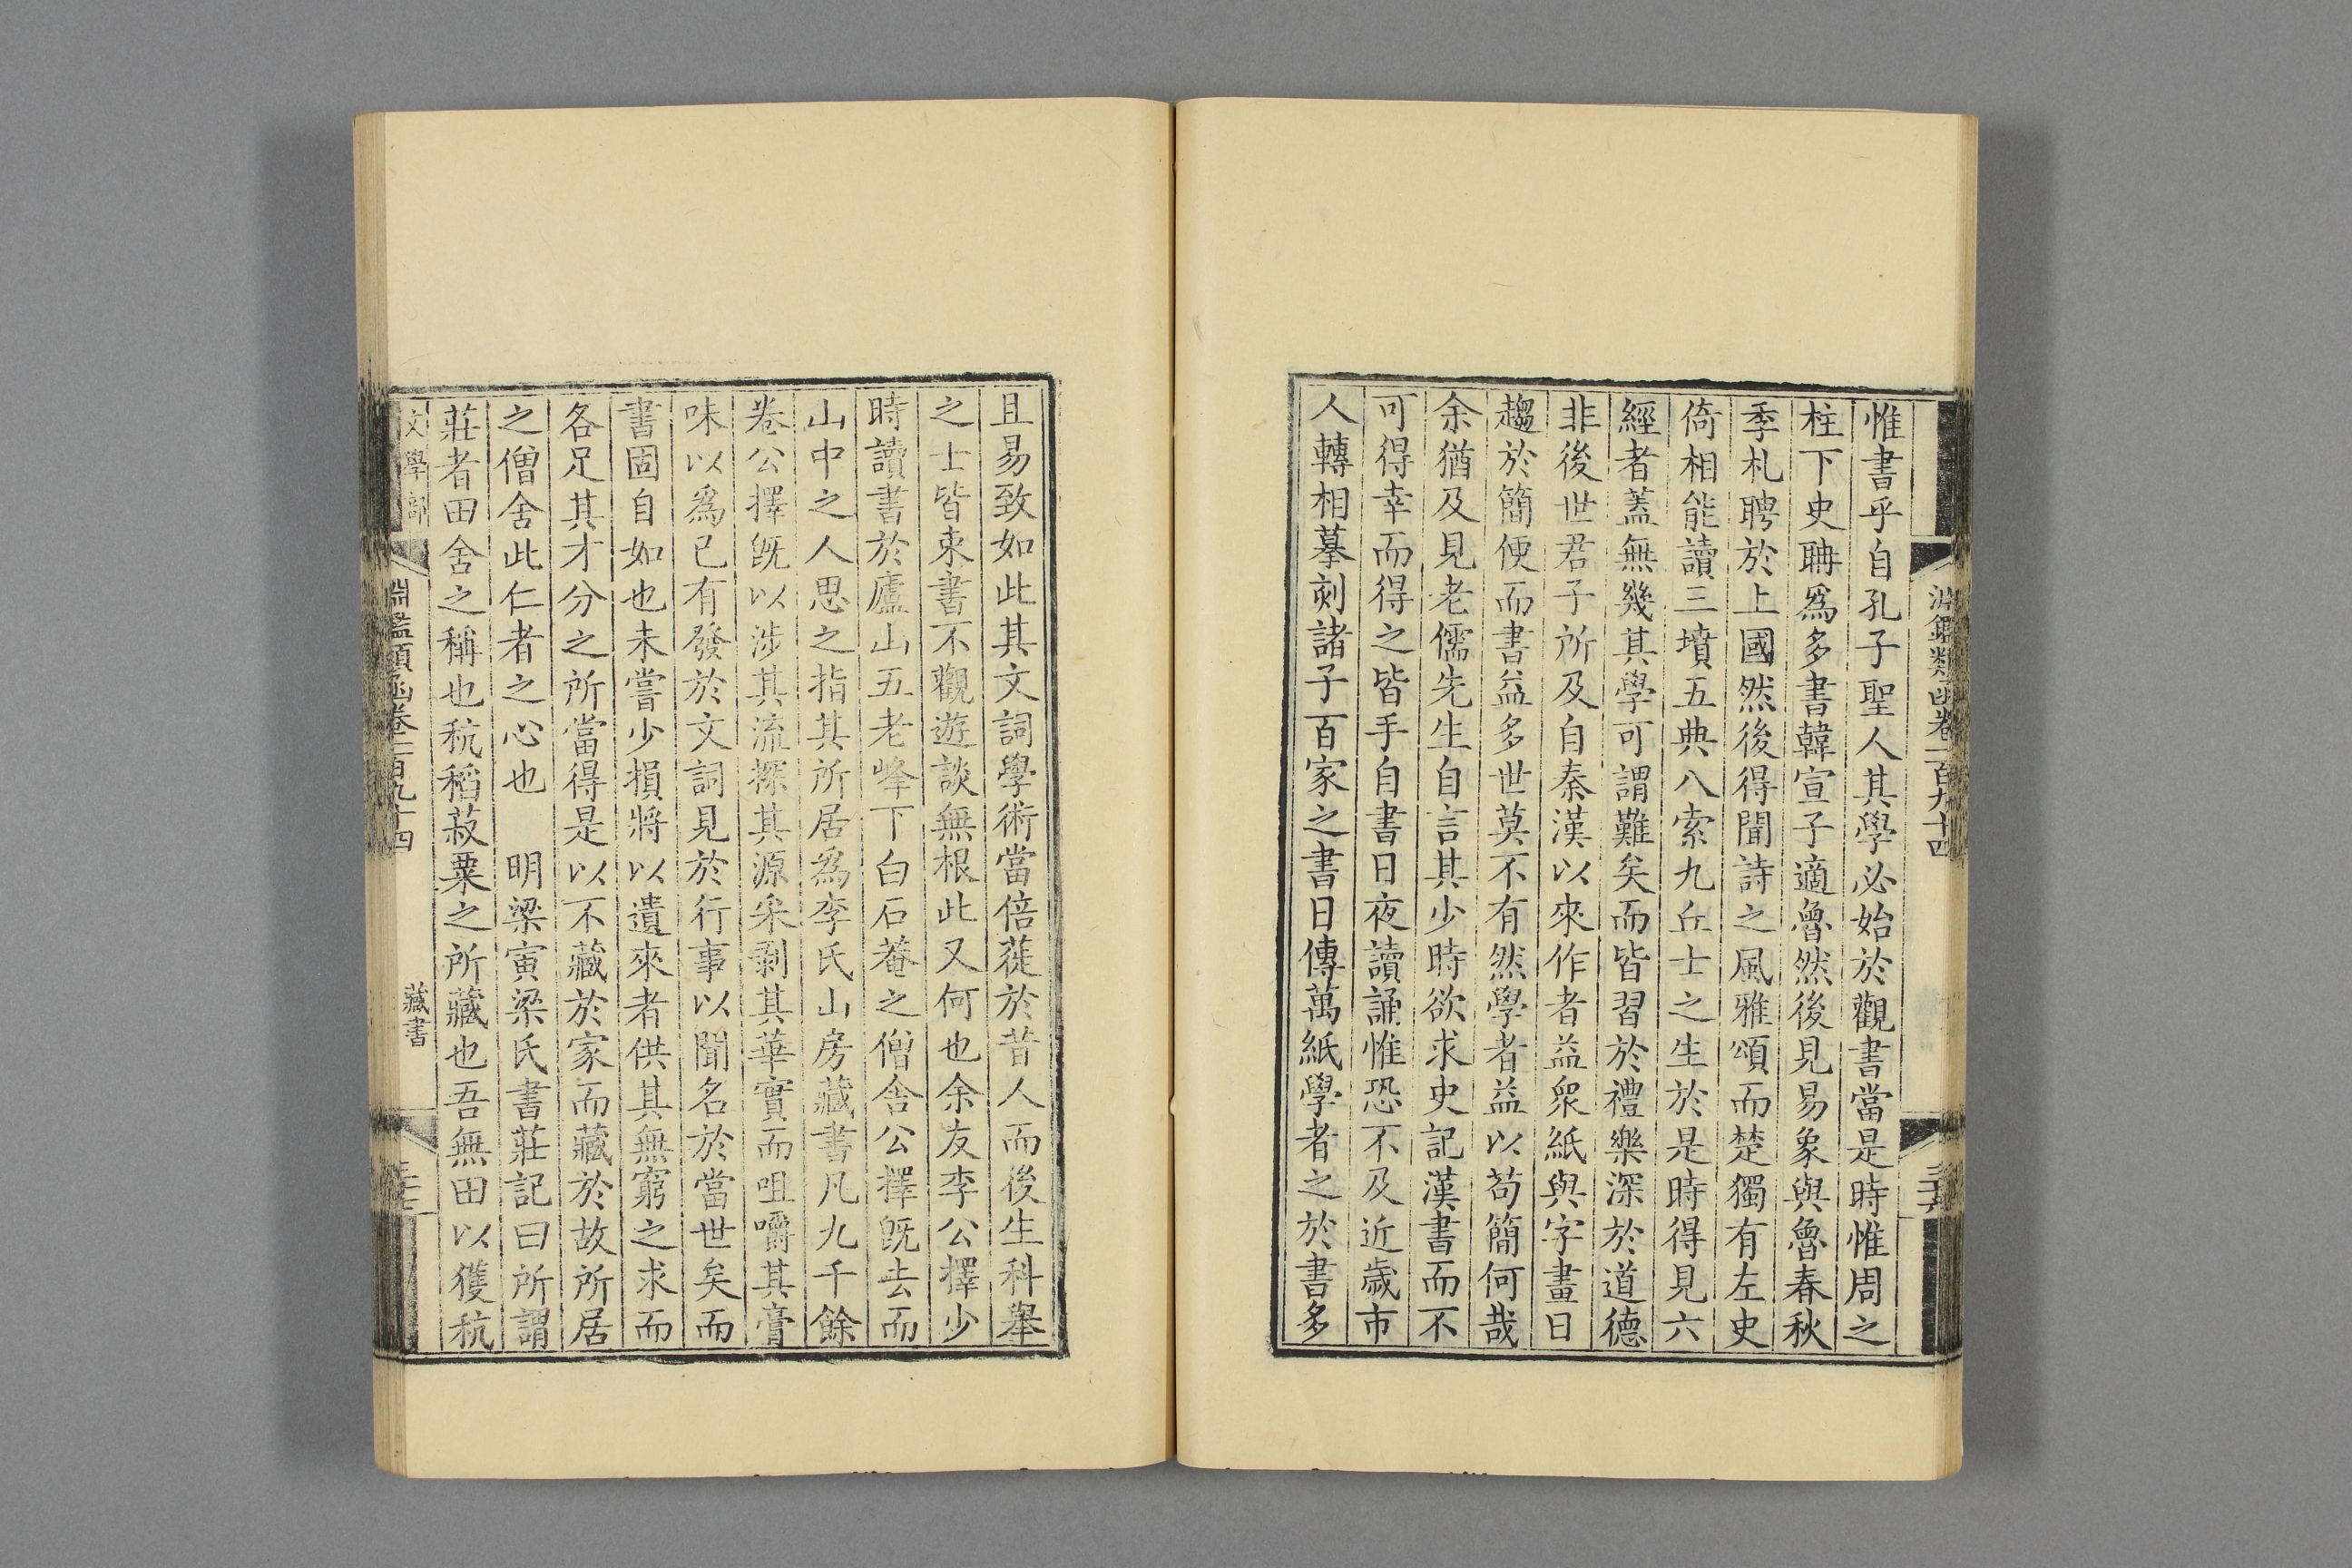 淵鑑類函卷一百九十四
惟書乎自孔子聖人其學必始於觀書當是時惟周之
柱下史聃爲多書韓宣子適魯然後見易象與魯春秋
季札聘於上國然後得聞詩之風雅頌而楚獨有左史
倚相能讀三墳五典八索九丘士之生於是時得見六
經者蓋無幾其學可謂難矣而皆習於禮樂深於道德
非後世君子所及自秦漢以來作者益衆紙與字畫日
趨於簡便而書益多世莫不有然學者益以苟簡何哉
余猶及見老儒先生自言其少時欲求史記漢書而不
可得幸而得之皆手自書日夜讀誦惟恐不及近歲市
人轉相摹刻諸子百家之書日傳萬紙學者之於書多
且易致如此其文詞學術當倍蓰於昔人而後生科舉
之士皆束書不觀遊談無根此又何也余友李公擇少
時讀書於廬山五老峰下白石菴之僧舍公擇旣去而
山中之人思之指其所居爲李氏山房藏書凡九千餘
卷公擇旣以涉其流探其源采剥其華實而咀嚼其膏
味以爲已有發於文詞見於行事以聞名於當世矣而
書固自如也未嘗少損將以遺來者供其無窮之求而
各足其才分之所當得是以不藏於家而藏於故所居
之僧舍此仁者之心也 明梁寅梁氏書莊記曰所謂
莊者田舍之稱也秔稻菽粟之所藏也吾無田以獲秔
文學部 淵鑑類函卷一百九十四 藏書